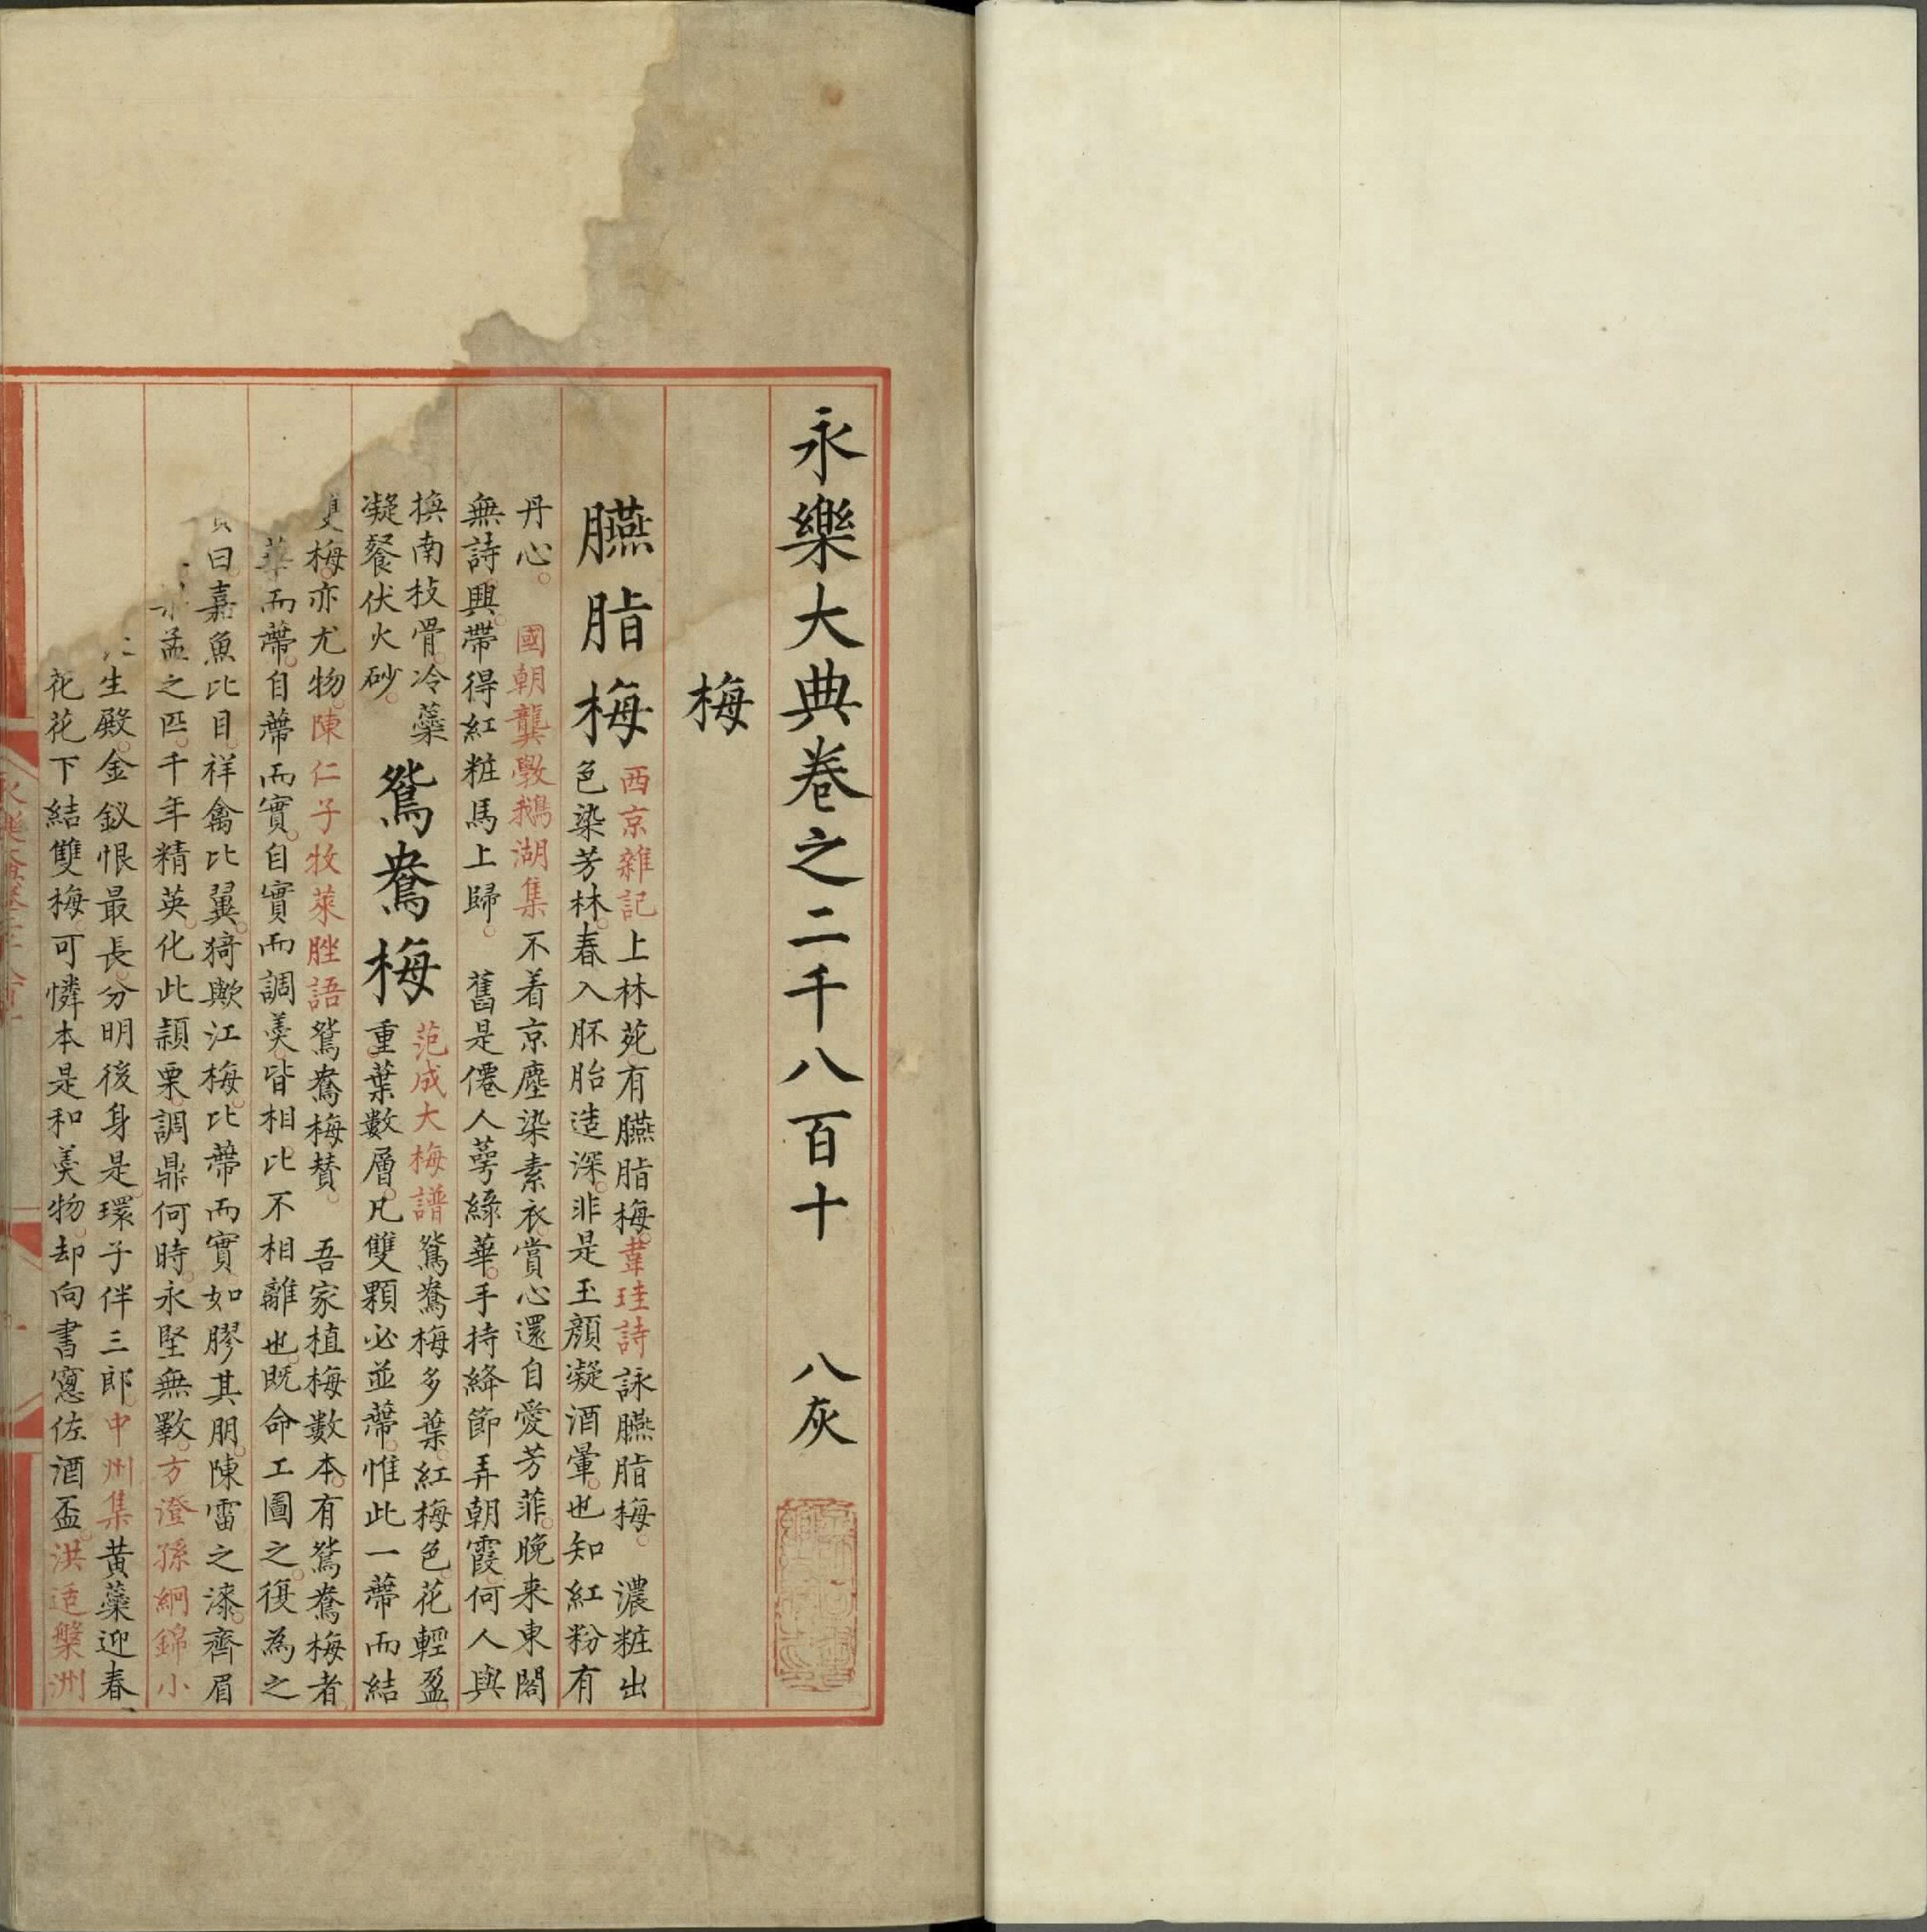 永樂大典卷之二千八百十 八灰
梅
臙脂梅
西京雜記上林苑有臙脂梅韋珪詩詠臙脂梅 濃粧出
色染芳林春入胚胎造深非是玉顔凝酒暈也知紅粉有
丹心 國朝龔斆鵝湖集不着京塵染素衣賞心還自愛芳菲晚来東閣
無詩興帶得紅粧馬上歸 舊是僊人萼緑華手持絳節弄朝霞何人與
換南枝骨冷蘂
凝餐伏火砂
鴛鴦梅
范成大梅譜鴛鴦梅多葉紅梅色花輕盈
重葉數層凡雙顆必並蔕惟此一蔕而結
梅亦尤物陳仁子牧萊脞語鴛鴦梅賛 吾家植梅數本有鴛鴦梅者
華而蔕自蔕而實自實而調羹皆相比不相離也既命工圖之復為之
曰嘉魚比目祥禽比翼猗歟江梅比蔕而實如膠其朋陳雷之漆齊眉
孟之匹千年精英化此顆栗調鼎何時永堅無斁方澄孫絅錦小
生殿金釵恨最長分明後身是環子伴三郎中州集黄蘂迎春
花花下結雙梅可憐本是和羹物却向書窻佐酒盃洪适槃洲